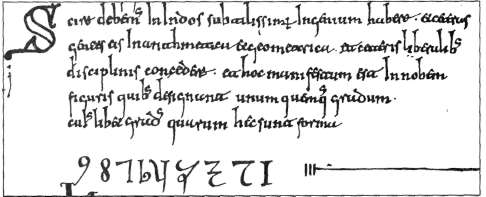 Scire debem⁹ In Indos subtilissimū Ingenium habere · et ceteras
gentes eis In arithmetica et geometrica · et ceteris liberalib⁹
disciplinis concedere · et hoc manifestum est In nobem
figuris quib⁹ designant unum quemq⁹ gradum ·
cui⁹libet grad⁹ quarum hec sunt forma
9 8 7 6 5 4 3 2 1